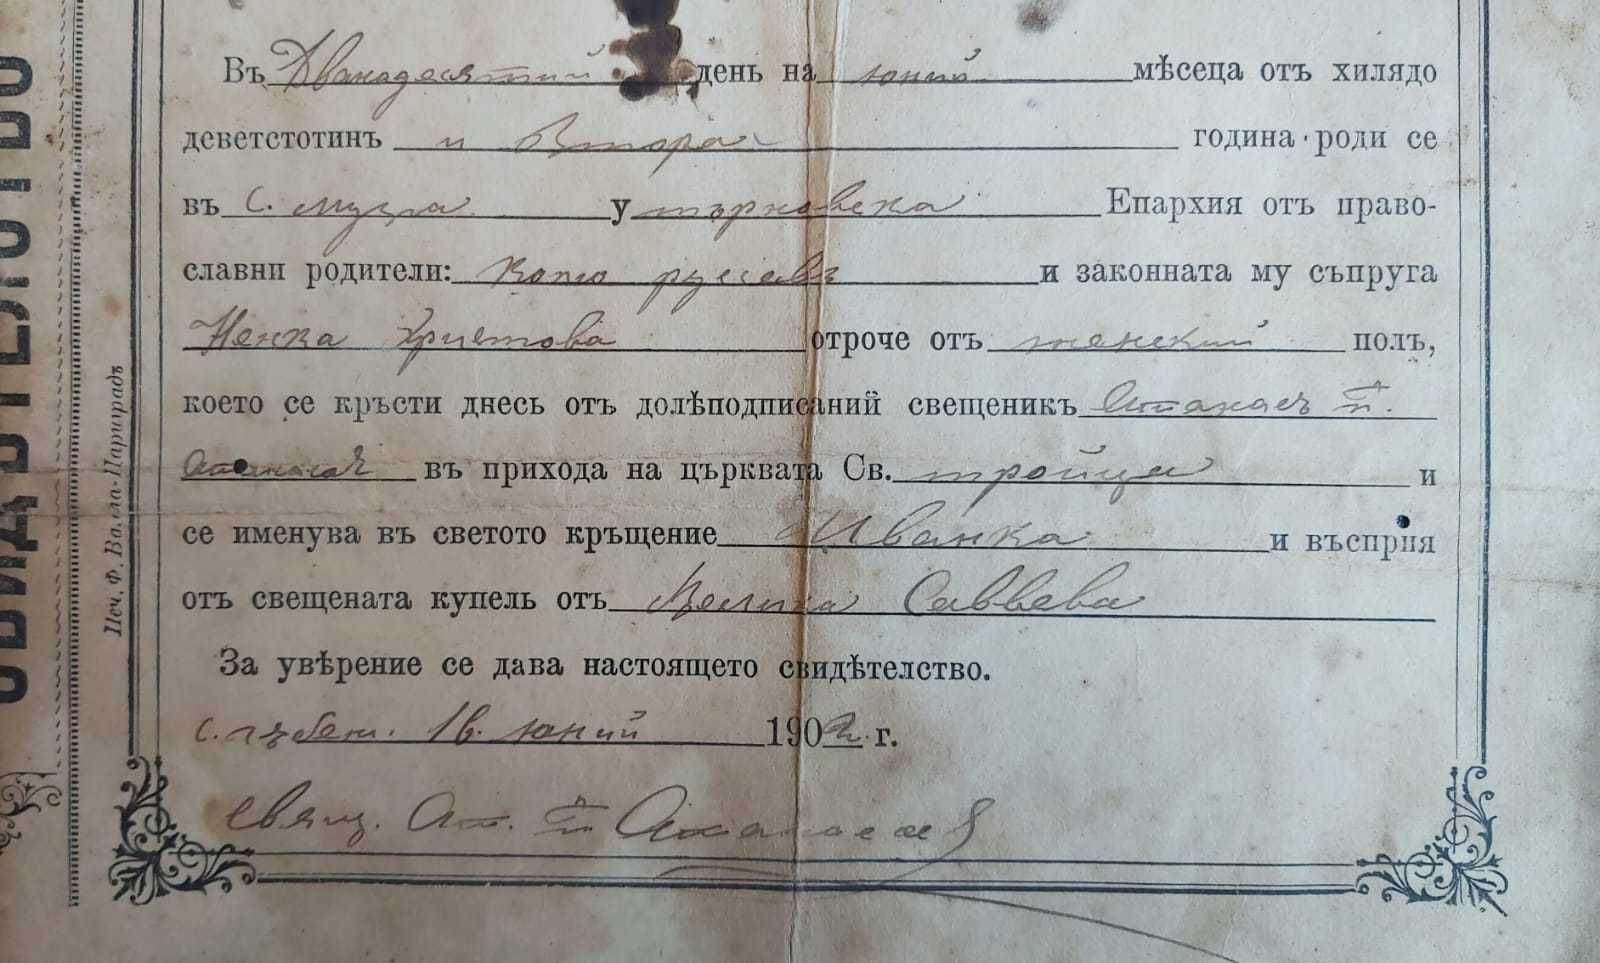 СВИДѢТЕЛСТВО
Печ. Ф. Валла-Цариградъ
Въ Дванадесятий день на юний мѣсеца отъ хилядо
деветстотинъ и Втора година роди се
въ с. муз у търновска Епархия отъ право-
славни родители: Кото русевъ и законната му съпруга
Ненка Христова отроче отъ женский полъ,
което се кръсти днесь отъ долѣподписаний свещеникъ Атанасъ п.
Атанасовъ въ прихода на църквата Св. тройца и
се именува въ светото кръщение Иванка и възприя
отъ свещената купель отъ Саввева
За увѣрение се дава настоящето свидѣтелство.
с. 16. юний 1902 г.
свящ. Ат. п Атанасовъ